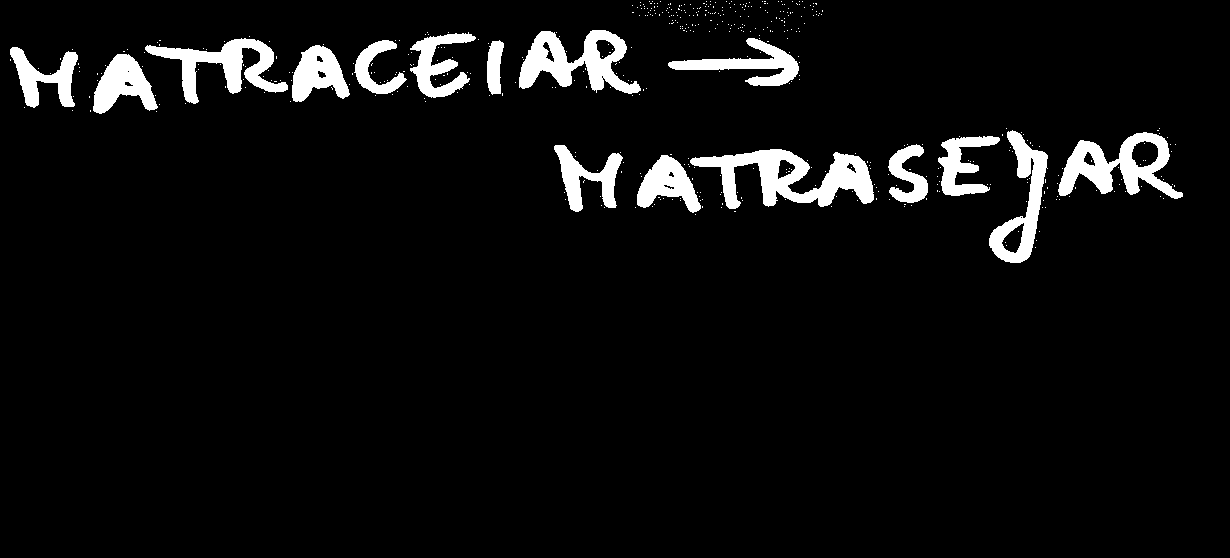 MATRACEIAR →
MATRASEYAR